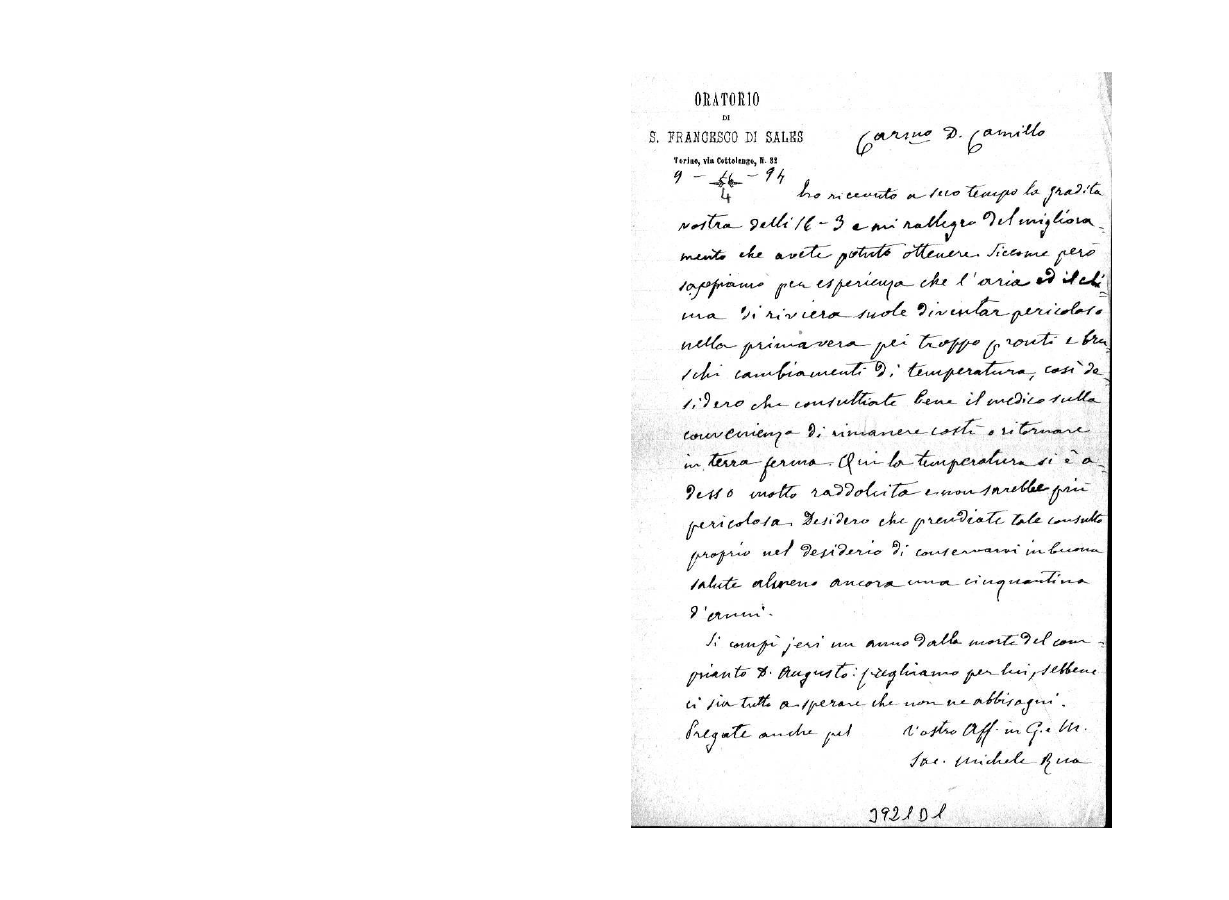 ORATORIO
DI
S. FRANCESCO DI SALES
Torino, via Cottolengo, N. 32
9 - 4 - 94
Carmo D. Camillo
ho ricevuto a suo tempo la gradita
vostra delli 16-3 e mi rallegro del migliora-
mento che avete potuto ottenere. Siccome però
sappiamo per esperienza che l'aria ed il cli=
ma di riviera suole diventar pericoloso
nella primavera pei troppo pronti e bru-
schi cambiamenti di temperatura, così de-
sidero che consultiate bene il medico sulla
convenienza di rimanere costì o ritornare
in terra ferma. Qui la temperatura si è a-
desso molto raddolcita e non sarebbe più
pericolosa. Desidero che prendiate tale consulto
proprio nel desiderio di conservarvi in buona
salute almeno ancora una cinquantina
d'anni.
Si compì jeri un anno dalla morte del com-
pianto D. Augusto: preghiamo per lui, sebbene
ci sia tutto a sperare che non ne abbisogni.
Pregate anche pel Vostro Aff. in G. e M.
Sac. Michele Rua
3921D1